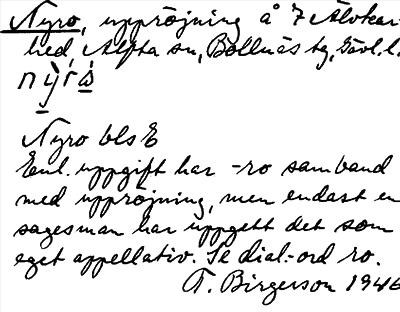 Nyro, uppröjning å 7 Älvkar-
hed, Alfta sn, Bollnäs tg, Gävl. l.
nỳrá̀
Nyro bls E
Enl. uppgift har -ro samband
med uppröjning, men endast en
sagesman har uppgett det som
eget appellativ. Se dial.-ord ro.
T. Birgerson 1946